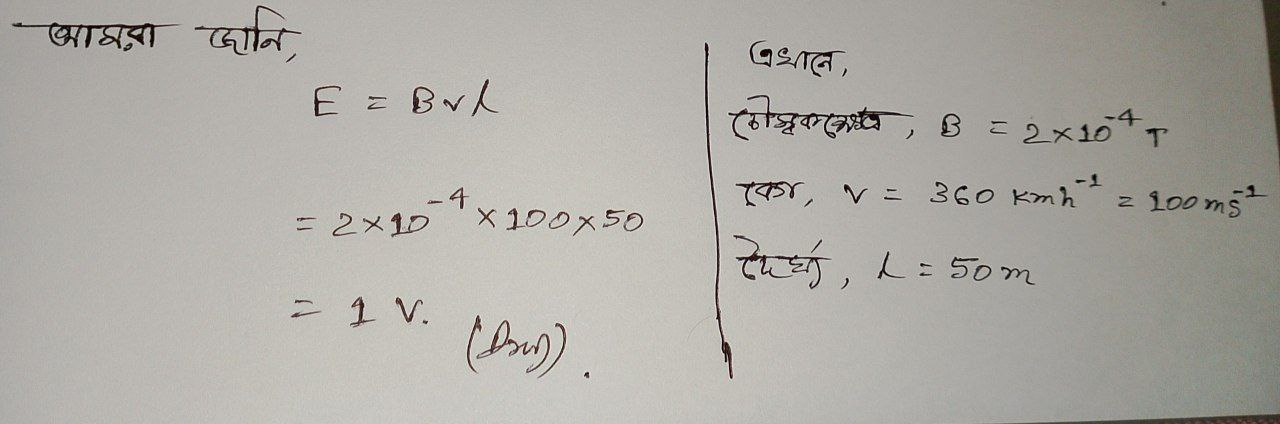 আমরা জানি,
E = Bvl
= 2×10⁻⁴ × 100 × 50
= 1 V. (Ans).
এখানে,
চৌম্বকক্ষেত্র, B = 2×10⁻⁴ T
বেগ, v = 360 kmh⁻¹ = 100 ms⁻¹
দৈর্ঘ্য, l = 50 m